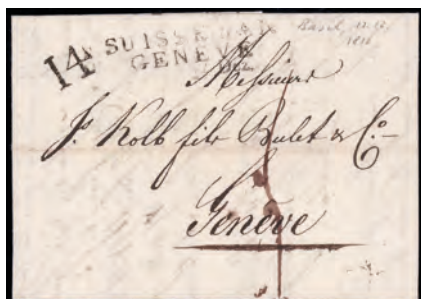 14
SUISSE PAR
GENEVE
Basel,
Messieurs
J. Kolb fils Bulet & Co.
Genève